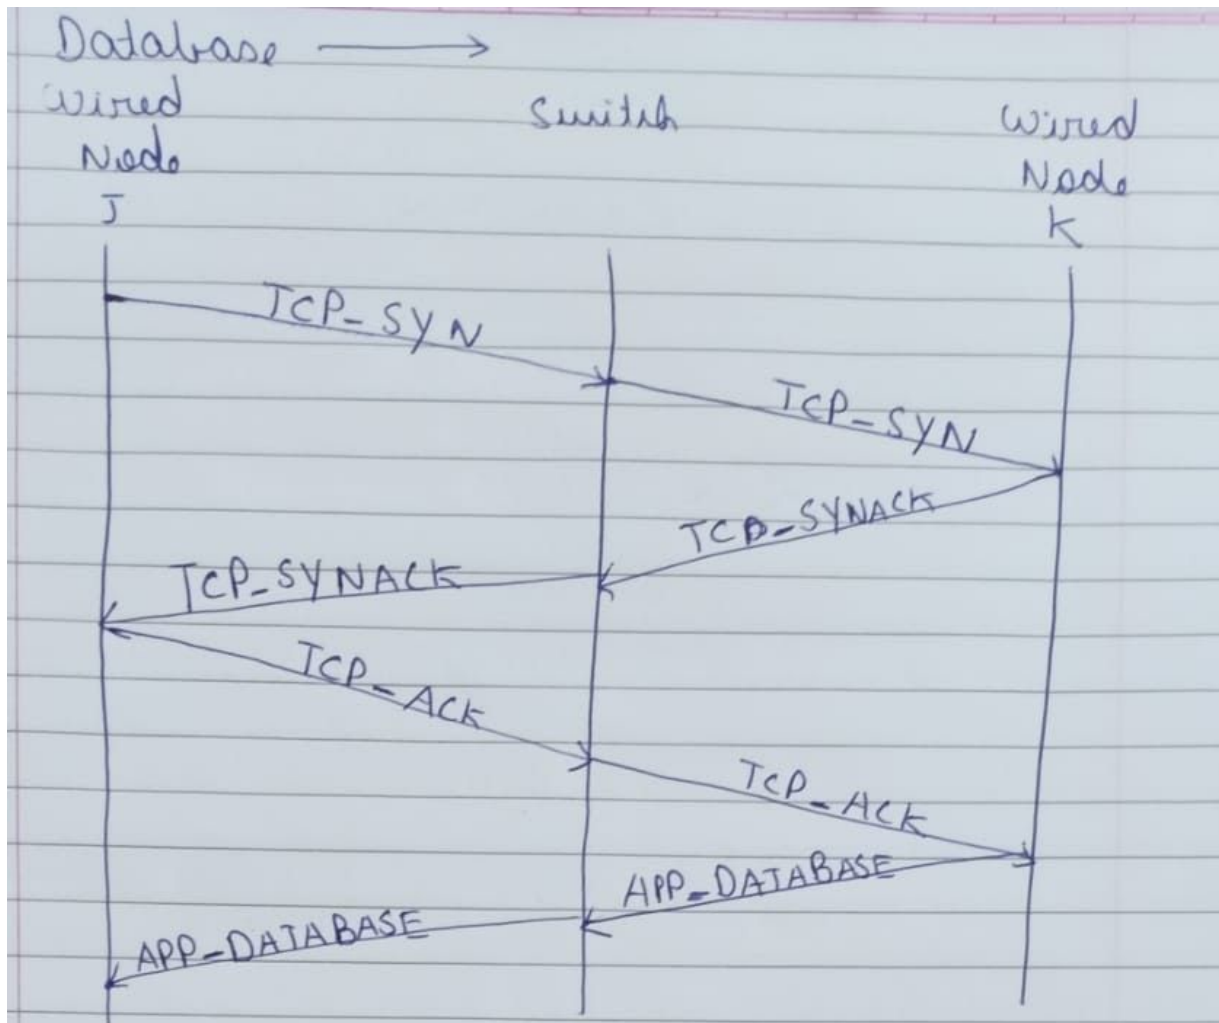 Database →
Wired Switch Wired
Node Node
J K
TCP_SYN
TCP_SYN
TCP_SYNACK
TCP_SYNACK
TCP_ACK
TCP_ACK
APP_DATABASE
APP_DATABASE